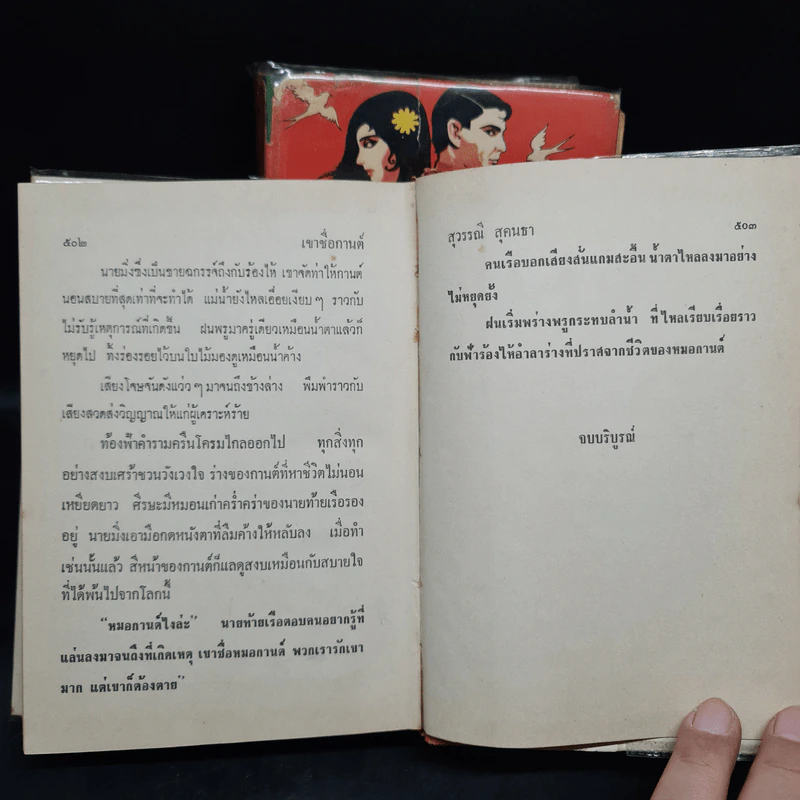 ๕๐๒ เขาชื่อกานต์
นายมิ่งซึ่งเป็นชายฉกรรจ์ถึงกับร้องไห้ เขาจัดท่าให้กานต์
นอนสบายที่สุดเท่าที่จะทำได้ แม่น้ำยังไหลเอื่อยเงียบ ๆ ราวกับ
ไม่รับรู้เหตุการณ์ที่เกิดขึ้น ฝนพรูมาครู่เดียวเหมือนน้ำตาแล้วก็
หยุดไป ทิ้งร่องรอยไว้บนใบไม้มองดูเหมือนน้ำค้าง
เสียงโจษจันดังแว่ว ๆ มาจนถึงข้างล่าง พึมพำราวกับ
เสียงสวดส่งวิญญาณให้แก่ผู้เคราะห์ร้าย
ท้องฟ้าคำรามครืนโครมไกลออกไป ทุกสิ่งทุก
อย่างสงบเศร้าชวนวังเวงใจ ร่างของกานต์ที่หาชีวิตไม่นอน
เหยียดยาว ศีรษะมีหมอนเก่าคร่ำคร่าของนายท้ายเรือรอง
อยู่ นายมิ่งเอามือกดหนังตาที่ลืมค้างให้หลับลง เมื่อทำ
เช่นนั้นแล้ว สีหน้าของกานต์ก็แลดูสงบเหมือนกับสบายใจ
ที่ได้พ้นไปจากโลกนี้
“หมอกานต์ไงล่ะ” นายท้ายเรือตอบคนอยากรู้ที่
แล่นลงมาจนถึงที่เกิดเหตุ เขาชื่อหมอกานต์ พวกเรารักเขา
มาก แต่เขาก็ต้องตาย”
สุวรรณี สุคนธา ๕๐๓
คนเรือบอกเสียงสั่นแกมสะอื้น น้ำตาไหลลงมาอย่าง
ไม่หยุดยั้ง
ฝนเริ่มพร่างพรูกระทบลำน้ำ ที่ไหลเรียบเรื่อยราว
กับฟ้าร้องไห้อำลาร่างที่ปราศจากชีวิตของหมอกานต์
จบบริบูรณ์